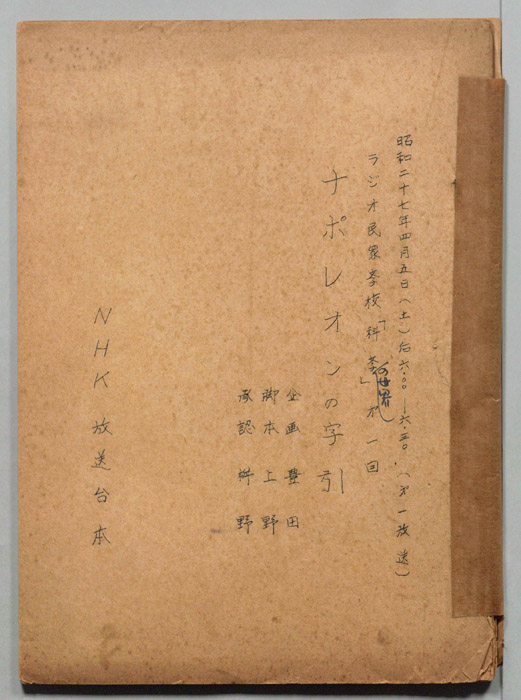 昭和二十七年四月五日(土)后六.〇〇—六.三〇(才一放送)
ラジオ民衆学校「科学の世界」才一回
ナポレオンの字引
企画 豊田
脚本 上野
承認 桝野
NHK放送台本